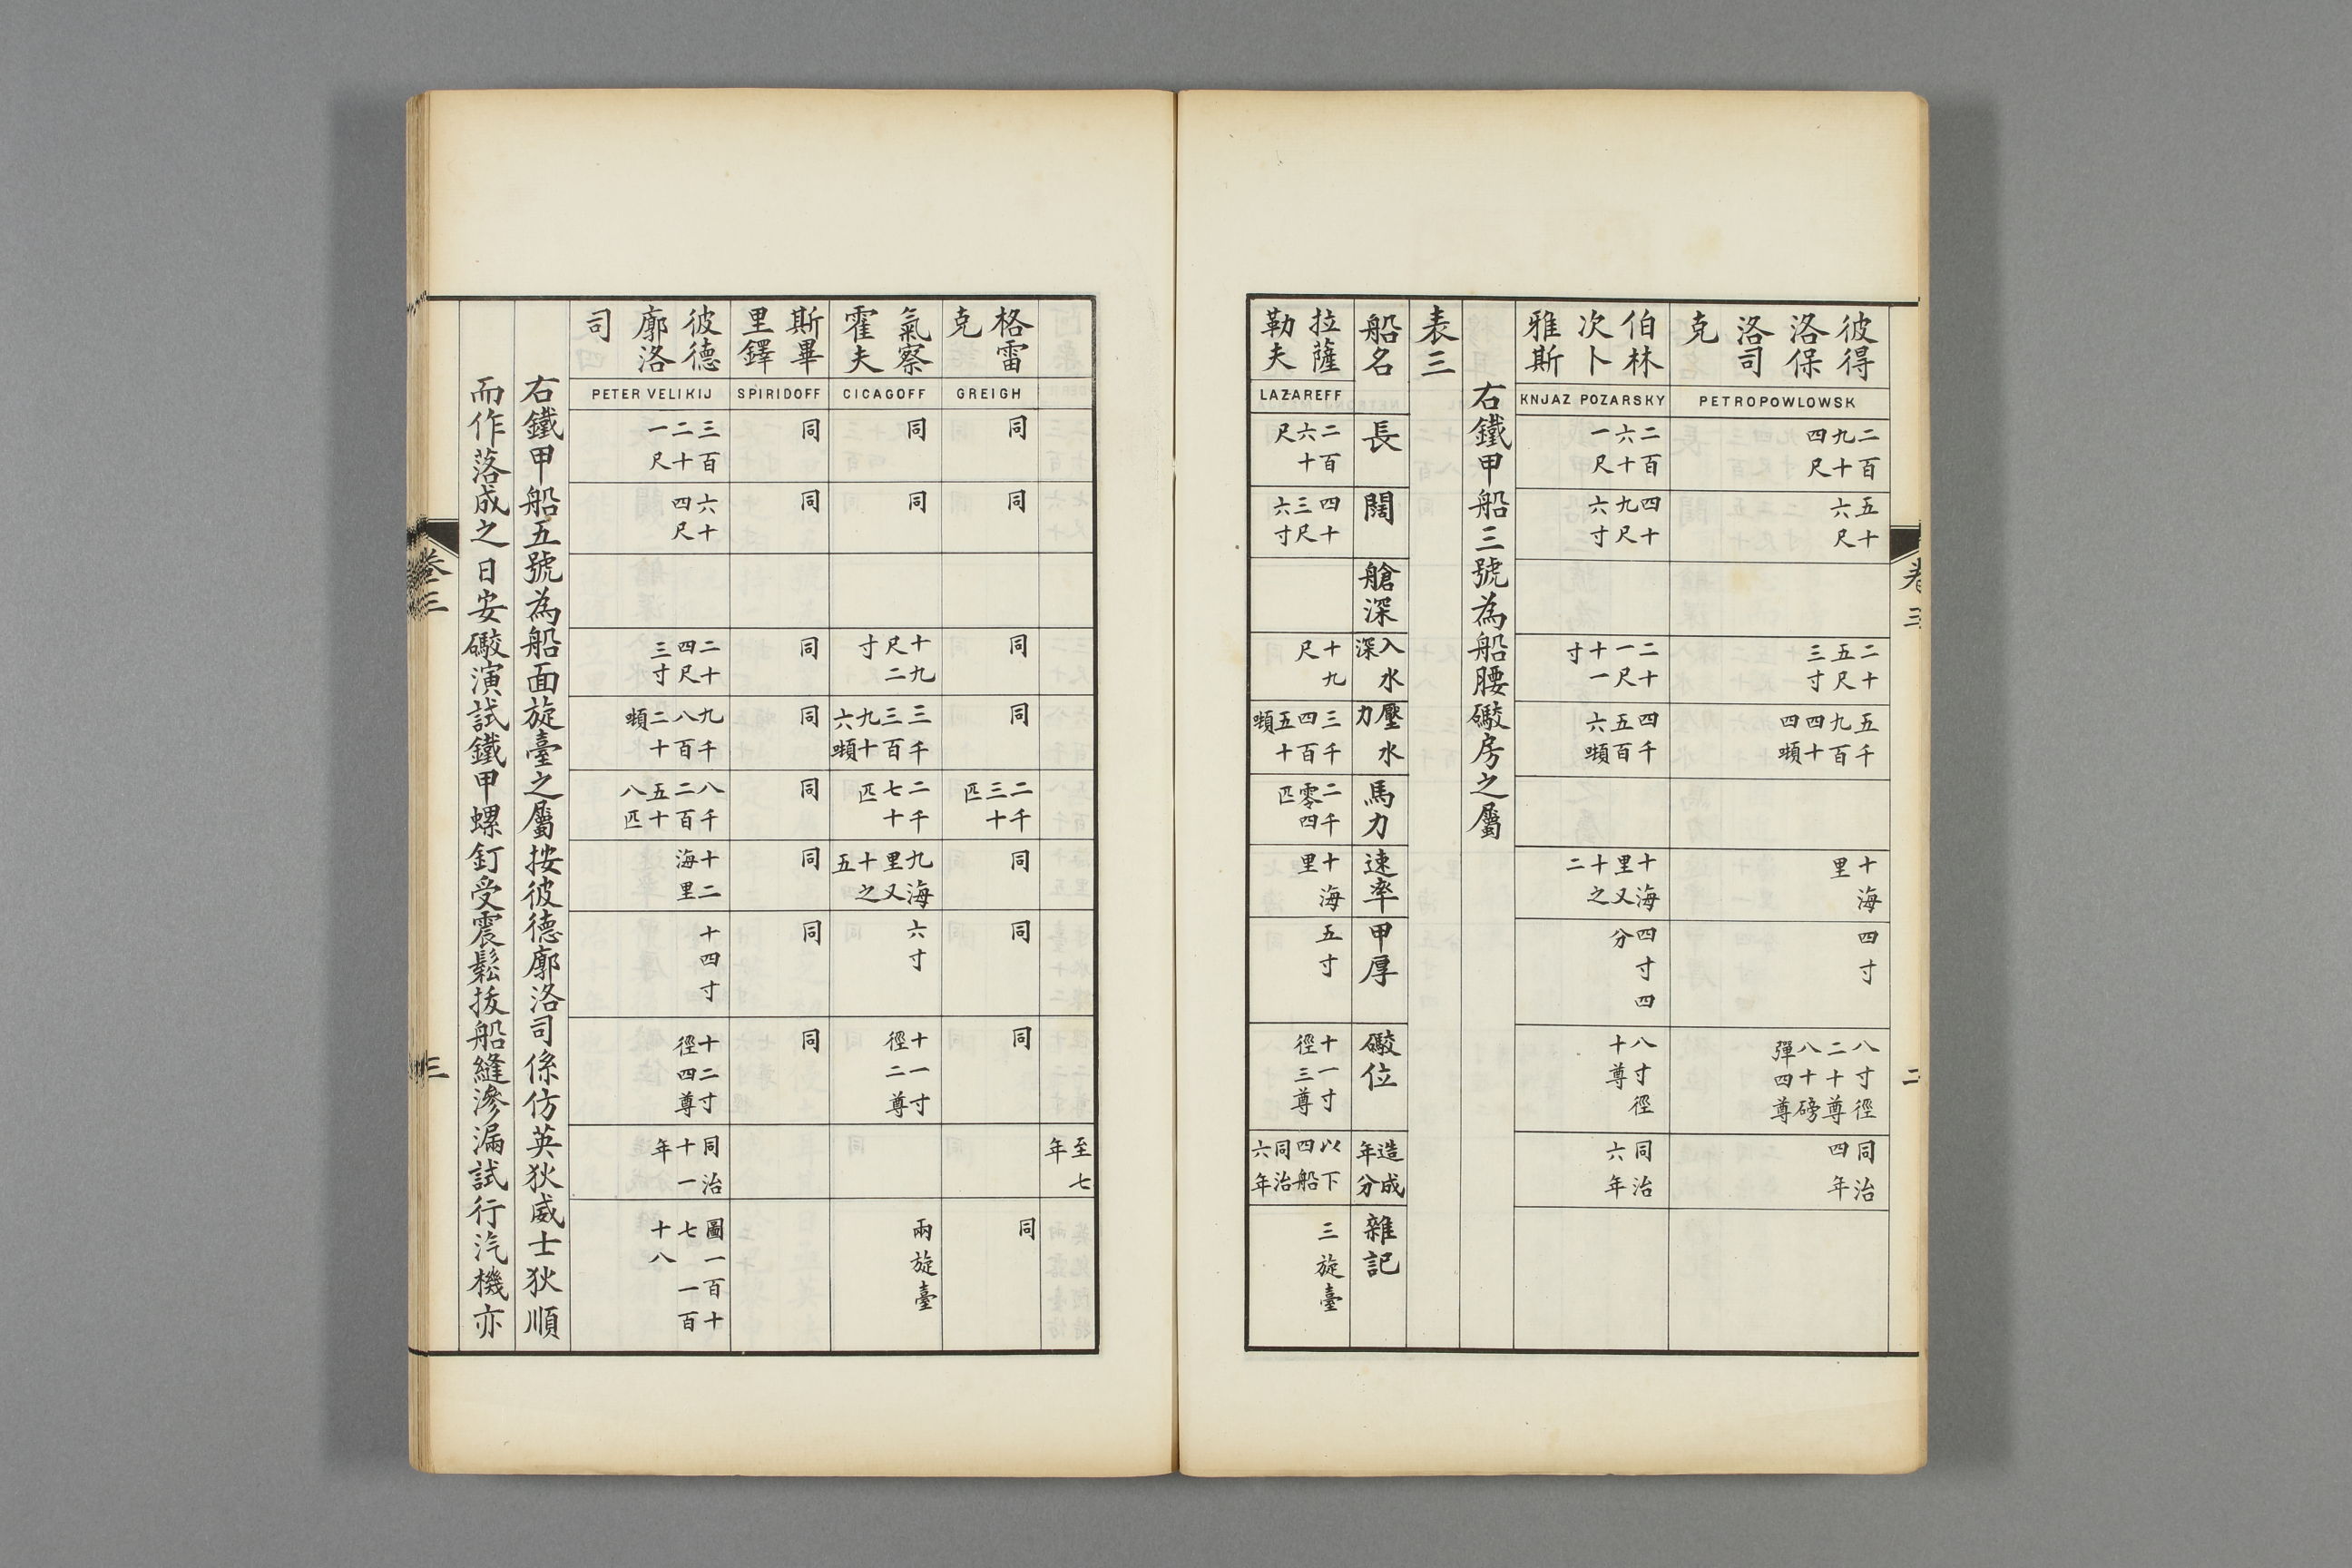 彼得
洛保
洛司
克
PETROPOWLOWSK
二百
九十
四尺
五十
六尺
二十
五尺
三寸
五千
九百
四十
四噸
十海
里
四寸
八寸徑
二十尊
八十磅
彈四尊
同治
四年
伯林
次卜
雅斯
KNJAZ POZARSKY
二百
六十
一尺
四十
九尺
六寸
二十
一尺
十一
寸
四千
五百
六噸
十海
里又
十之
二
四寸四
分
八寸徑
十尊
同治
六年
右鐵甲船三號為船腰礮房之屬
表三
船名
長
闊
艙深
入水
深
壓水
力
馬力
速率
甲厚
礮位
造成
年分
雜記
拉薩
勒夫
LAZAREFF
二百
六十
尺
四十
三尺
六寸
十九
尺
三千
四百
五十
噸
二千
零四
匹
十海
里
五寸
十一寸
徑三尊
以下
四船
同治
六年
三旋臺
卷三
二
至七
年
格雷
克
GREIGH
同
同
同
同
二千
三十
匹
同
同
同
同
氣察
霍夫
CICAGOFF
同
同
十九
尺二
寸
三千
三百
九十
六噸
二千
七十
匹
九海
里又
十之
五
六寸
十一寸
徑二尊
兩旋臺
斯畢
里鐸
SPIRIDOFF
同
同
同
同
同
同
同
同
彼德
廓洛
司
PETER VELIKIJ
三百
二十
一尺
六十
四尺
二十
四尺
三寸
九千
八百
二十
噸
八千
二百
五十
八匹
十二
海里
十四寸
十二寸
徑四尊
同治
十一
年
圖一百十
七 一百
十八
右鐵甲船五號為船面旋臺之屬按彼德廓洛司係仿英狄威士狄順
而作落成之日安礮演試鐵甲螺釘受震鬆拔船縫滲漏試行汽機亦
卷三
三